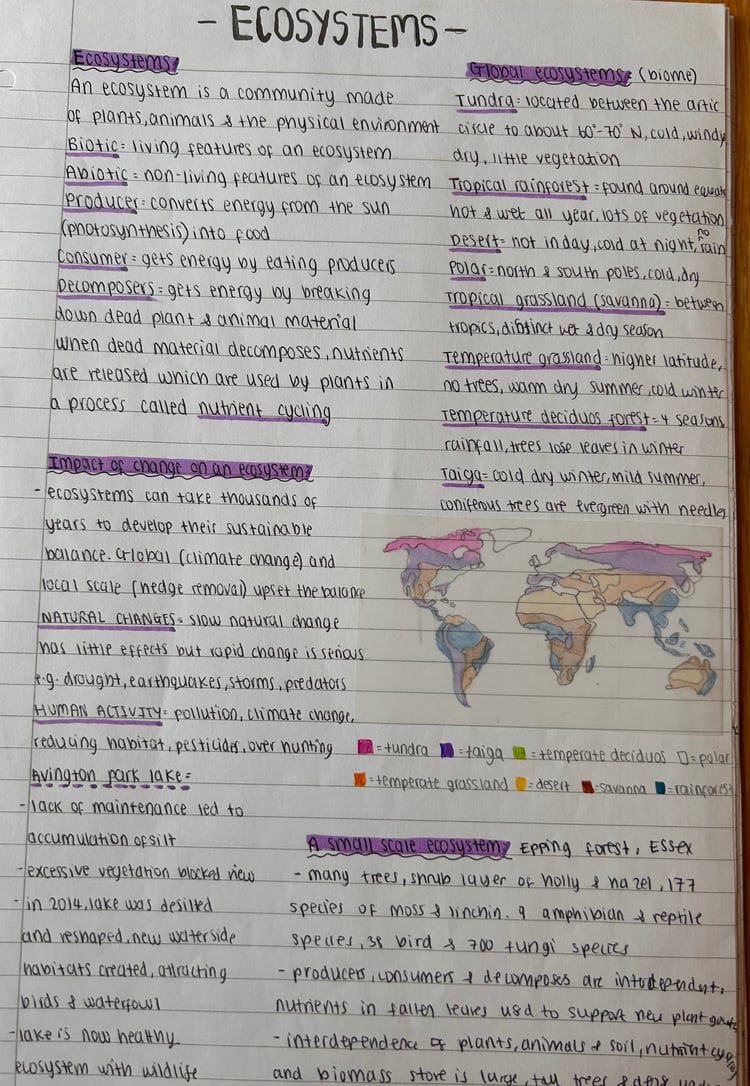 - ECOSYSTEMS -
Ecosystems:
An ecosystem is a community made
of plants, animals & the physical environment
Biotic = living features of an ecosystem
Abiotic = non-living features of an ecosystem
Producer = converts energy from the sun
(photosynthesis) into food
Consumer = gets energy by eating producers
Decomposers = gets energy by breaking
down dead plant & animal material
when dead material decomposes, nutrients
are released which are used by plants in
a process called nutrient cycling
Impact of change on an ecosystem:
- ecosystems can take thousands of
years to develop their sustainable
balance. Global (climate change) and
local scale (hedge removal) upset the balance
NATURAL CHANGES = slow natural change
has little effects but rapid change is serious
e.g. drought, earthquakes, storms, predators
HUMAN ACTIVITY = pollution, climate change,
reducing habitat, pesticides, over hunting
Avington park lake =
- lack of maintenance led to
accumulation of silt
- excessive vegetation blocked view
- in 2014, lake was desilted
and reshaped, new waterside
habitats created, attracting
birds & waterfowl
- lake is now healthy
ecosystem with wildlife
Global ecosystems: (biome)
Tundra = located between the artic
circle to about 60°-70° N, cold, windy
dry, little vegetation
Tropical rainforest = found around
hot & wet all year, lots of vegetation
Desert = hot in day, cold at night, no rain
Polar = north & south poles, cold, dry
Tropical grassland (savanna) = between
tropics, distinct wet & dry season
Temperature grassland = higher latitude,
no trees, warm dry summer, cold winter
Temperature deciduos forest = 4 seasons
rainfall, trees lose leaves in winter
Taiga = cold dry winter, mild summer,
coniferous trees are evergreen with needles
= tundra = taiga = temperate deciduos = polar
= temperate grassland = desert = savanna = rainforest
A small scale ecosystem: Epping forest, Essex
- many trees, shrub layer of holly & hazel, 177
species of moss & linchin. 9 amphibian & reptile
species, 38 bird & 700 fungi species
- producers, consumers & decomposes are interdependent,
nutrients in fallen leaves used to support new plant
- interdependence of plants, animals & soil, nutrient
and biomass store is large, tall trees &